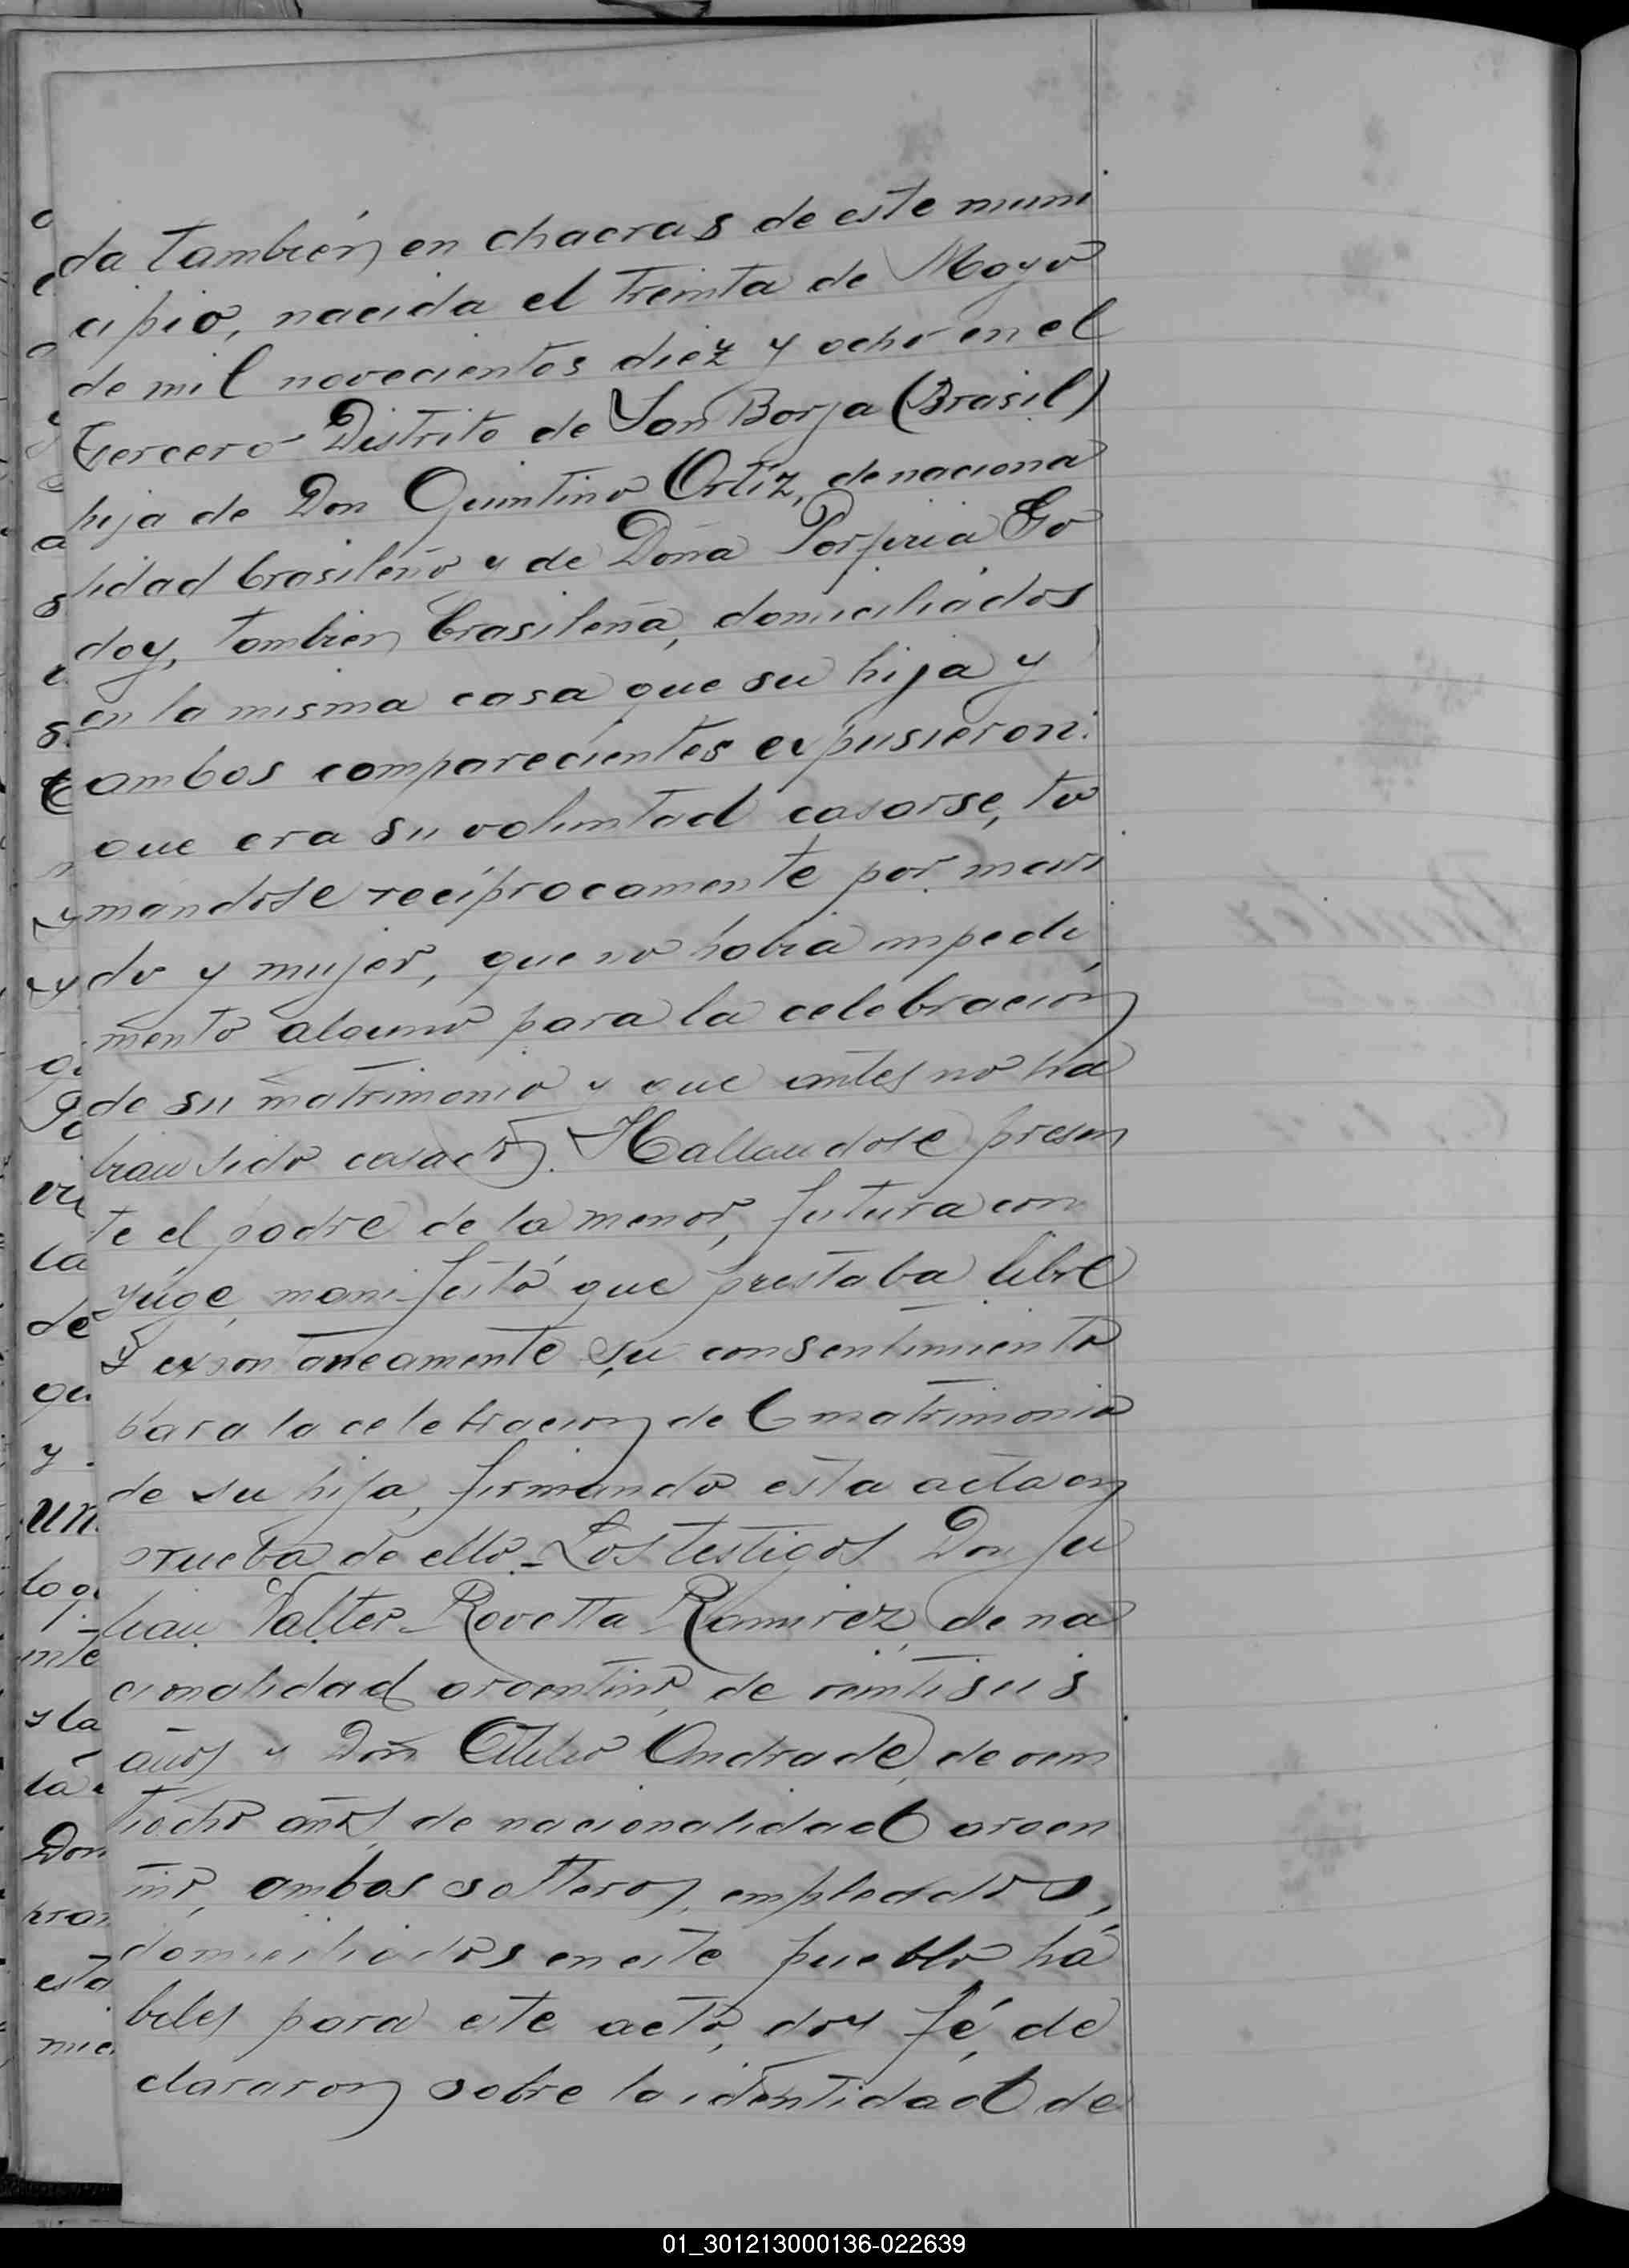 da también en chacras de este muni
cipio, nacida el treinta de Mayo
de mil novecientos diez y ocho en el
tercero Distrito de San Borja (Brasil)
hija de Don Quintino Ortíz, de naciona
lidad brasileño y de Doña Porfiria Go
doy, tambien brasileña, domiciliados
en la misma casa que su hija y
ambos comparecientes expusieron:
que era su voluntad casarse, to
mandose recíprocamente por mari
do y mujer, que no habia impedi
mento alguno para la celebración
de su matrimonio y que antes no ha
bian sido casados. Hallandose presen
te el padre de la menor, futura con
yúge, manifestó que prestaba libre
y expontaneamente su consentimiento
para la celebracion del matrimonio
de su hija, firmando esta acta en
prueba de ello. Los testigos Don Ju
lian Valter Rovetta Ramirez, de na
cionalidad argentino, de veintiseis
años y Don Atilio Andrade, de vein
tiocho años, de nacionalidad argen
tino, ambos solteros, empleados,
domiciliados en este pueblo há
biles para este acto, doy fé, de
clararon sobre la identidad de
01_301213000136-022639